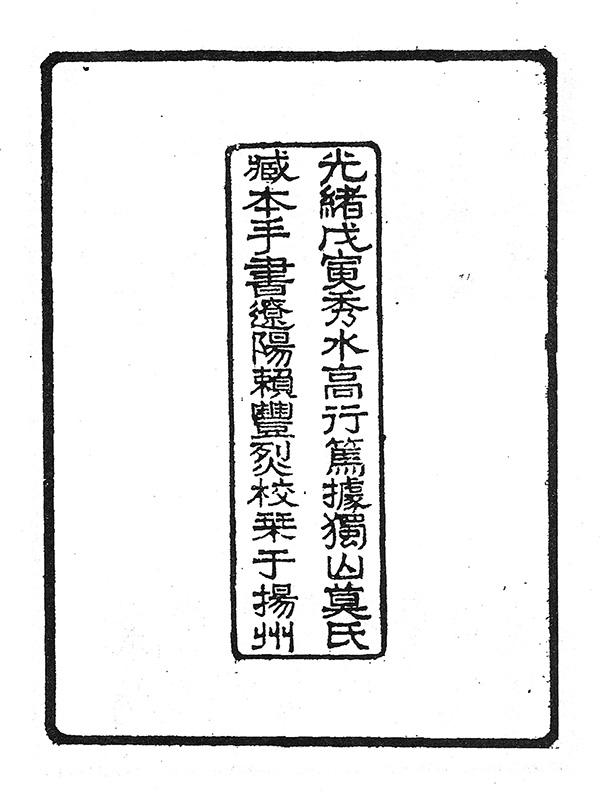 光緒戊寅秀水高行篤據獨山莫氏
藏本手書遼陽賴豐烈校栞于揚州